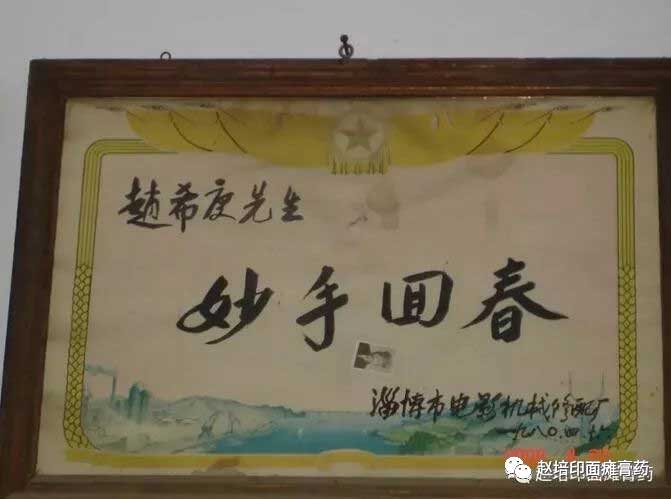 趙希庚先生
妙手回春
淄博市电影机械修配厂
一九八〇.四.
赵培印面瘫膏药
赵培印面瘫膏药